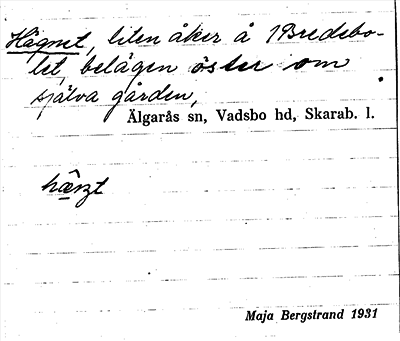 Hägnet, liten åker å 1 Bredebo-
let, belägen öster om
själva gården,
Älgarås sn, Vadsbo hd, Skarab. l.
Maja Bergstrand 1931